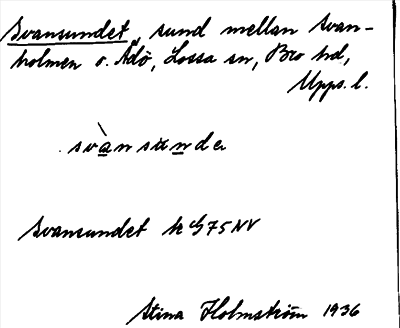 Svansundet, sund mellan Svan-
holmen o. Ådö, Lossa sn, Bro hd,
Upps. l.
svànsunde
Svansundet k G75NV
Stina Holmström 1936